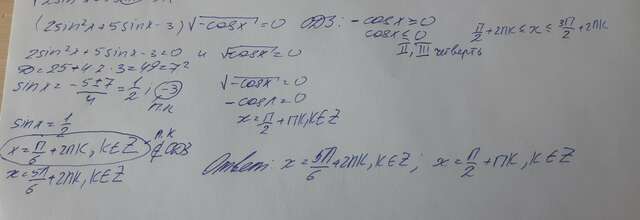 (2sin²x+5sinx-3)√-cosx=0 ОДЗ: -cosx≥0 π/2+2πk≤x≤3π/2+2πk
cosx≤0
II, III четверть
2sin²x+5sinx-3=0 и √-cosx=0
D=25+4·2·3=49=7²
sinx=-5±7/4=1/2; -3
п.к
√-cosx=0
-cosx=0
x=π/2+πk, k∈Z
sinx=1/2
x=π/6+2πk, k∈Z п.к ∉ ОДЗ
x=5π/6+2πk, k∈Z
Ответ: x=5π/6+2πk, k∈Z; x=π/2+πk, k∈Z